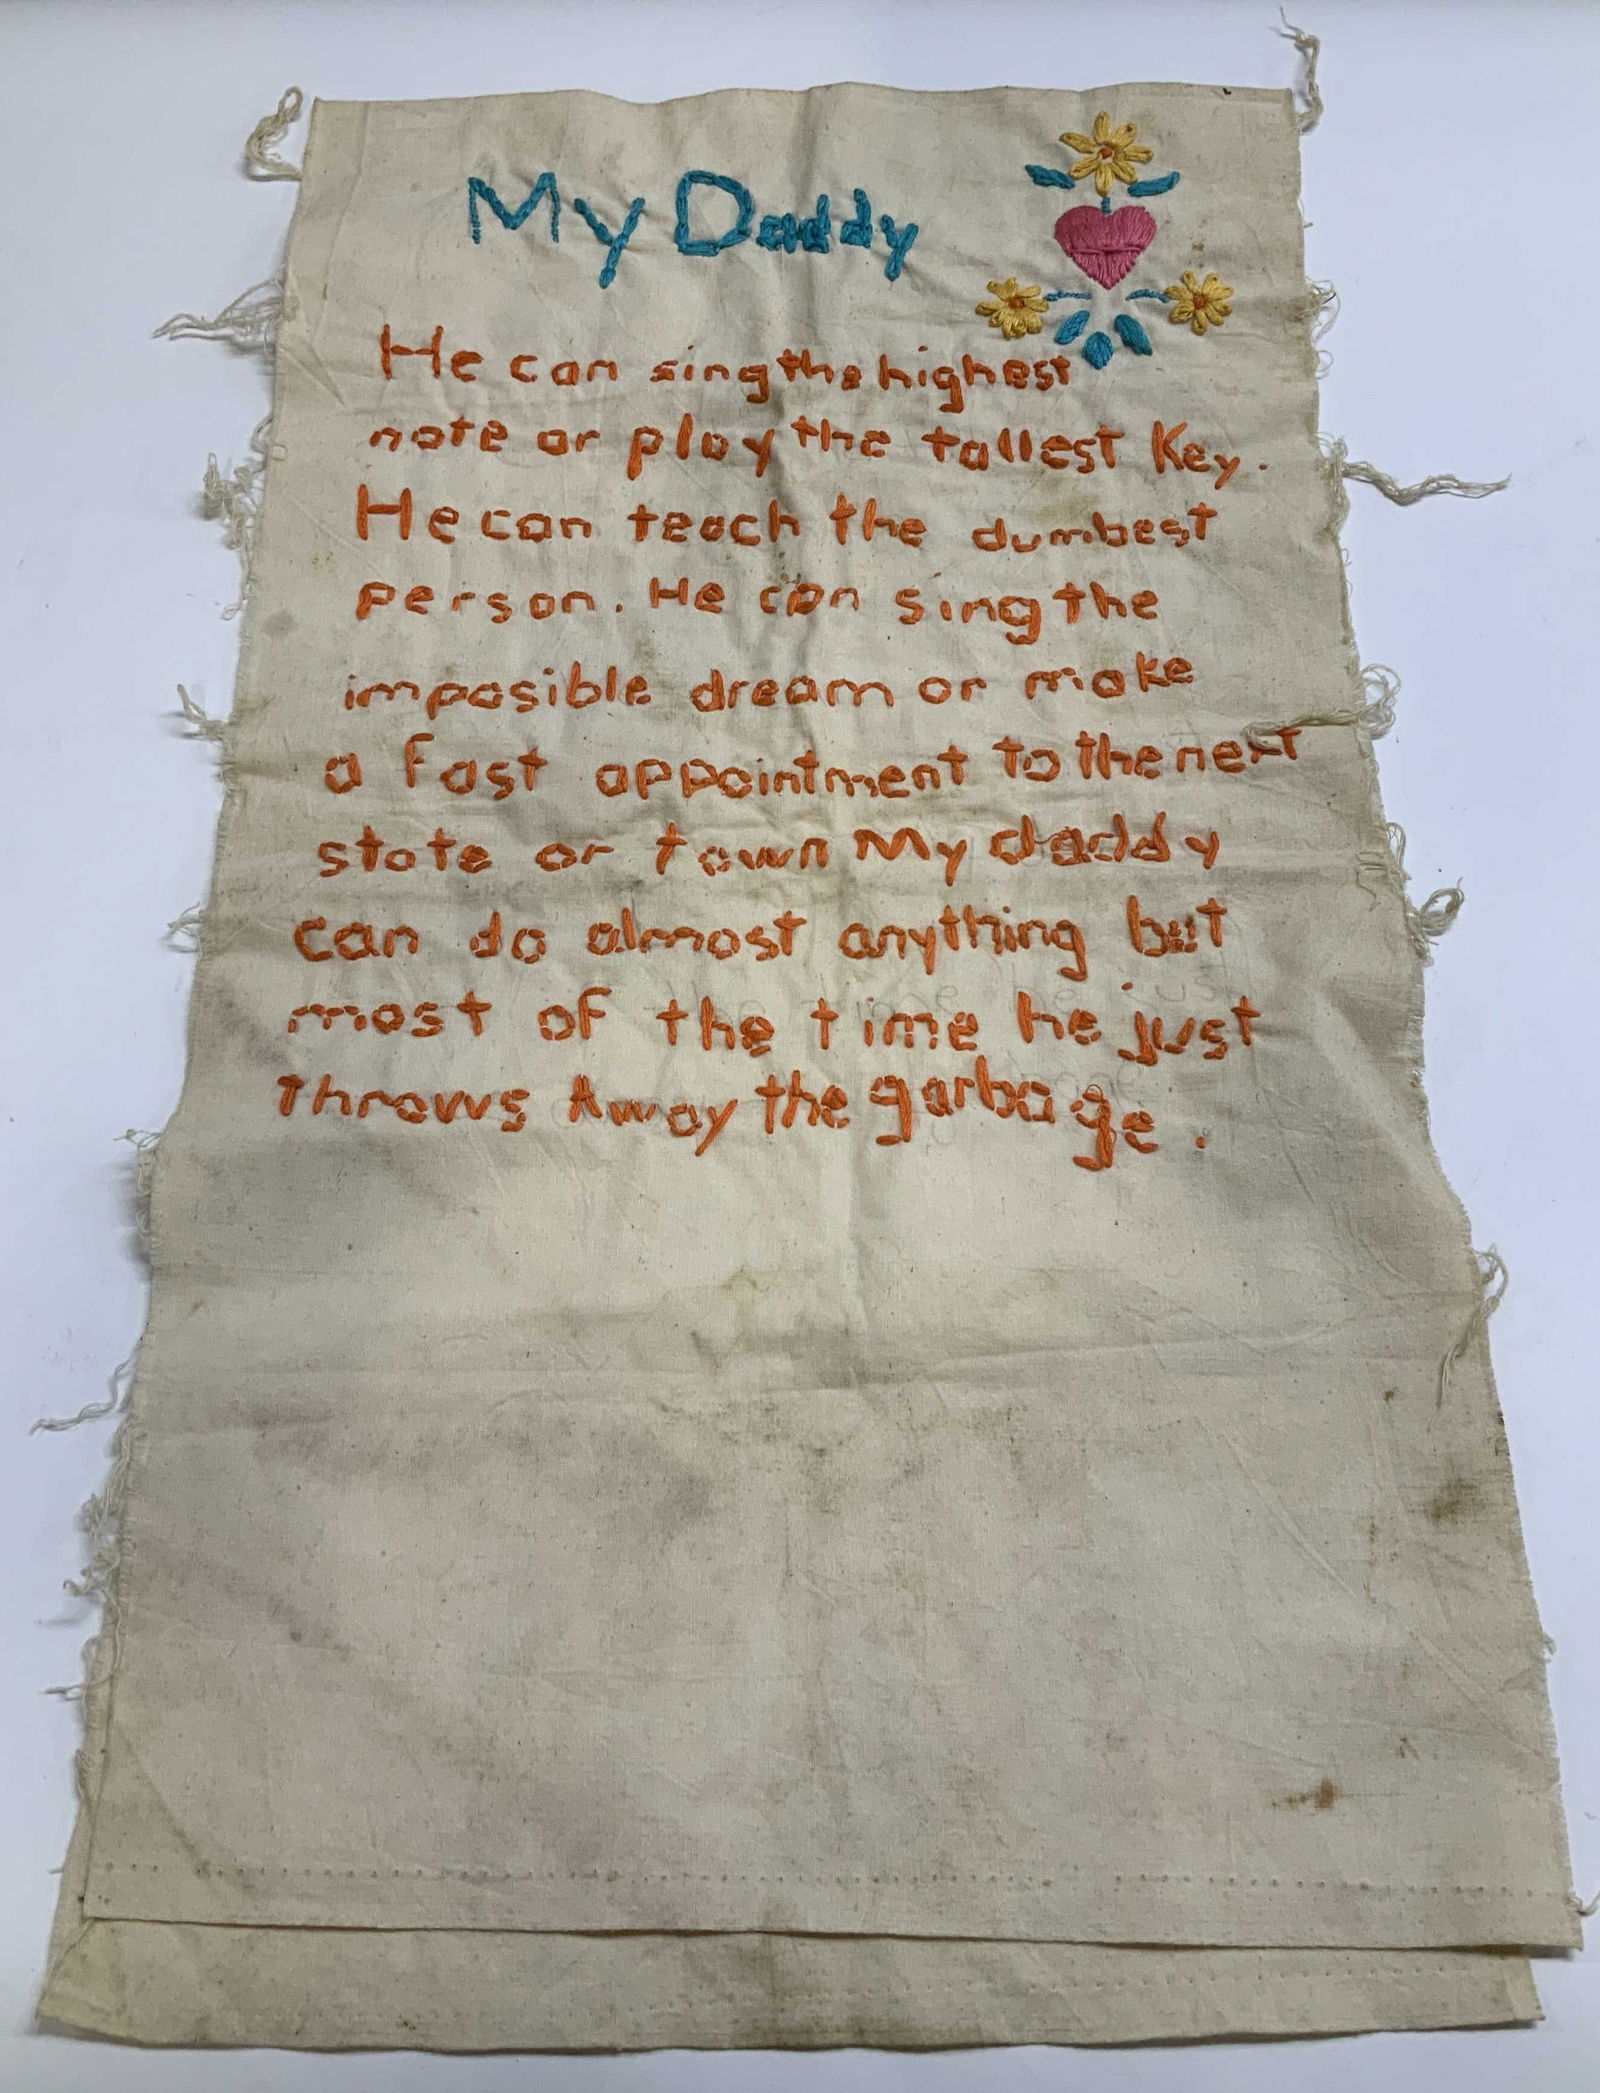 My Daddy
He can sing the highest
note or play the tallest Key.
He can teach the dumbest
person. He can sing the
imposible dream or make
a fast appointment to the next
state or town My daddy
can do almost anything but
most of the time he just
throws Away the garbage.